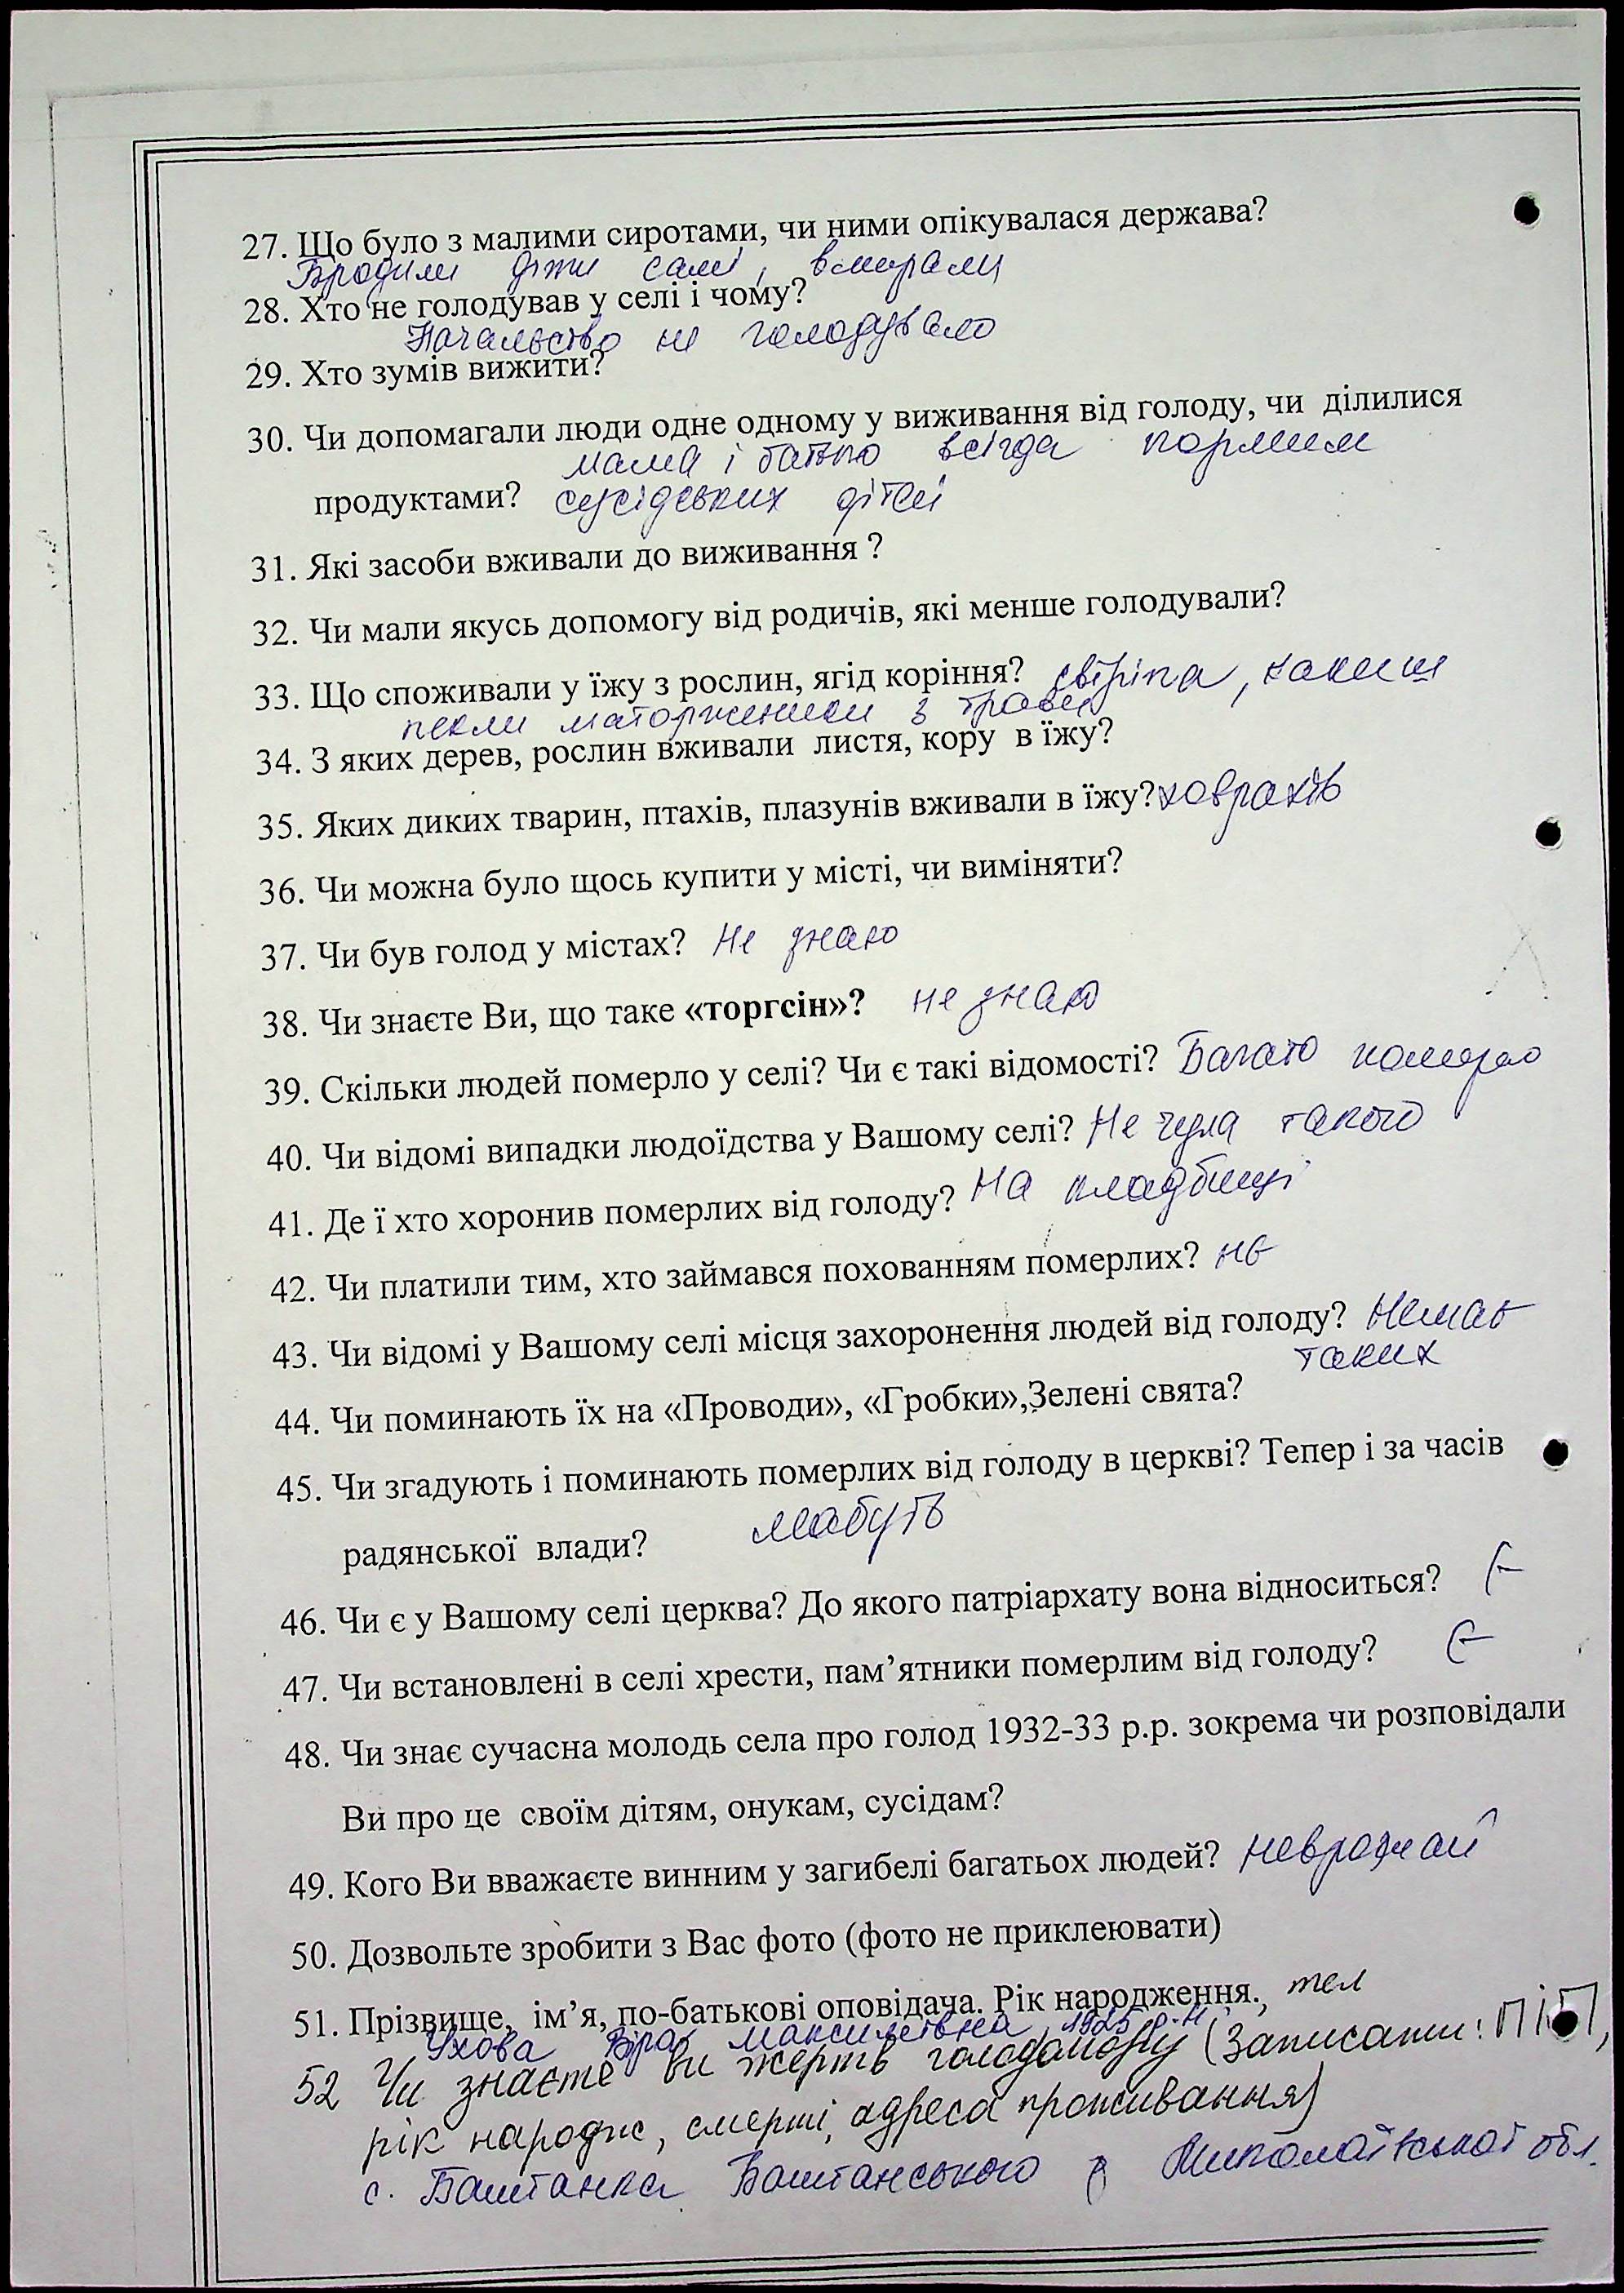 27. Що було з малими сиротами, чи ними опікувалася держава?
Бродили діти самі, вмирали
28. Хто не голодував у селі і чому?
Начальство не голодувало
29. Хто зумів вижити?
30. Чи допомагали люди одне одному у виживання від голоду, чи ділилися
мама і батько всігда кормили
продуктами? сусідських дітей
31. Які засоби вживали до виживання ?
32. Чи мали якусь допомогу від родичів, які менше голодували?
33. Що споживали у їжу з рослин, ягід коріння? свіріпа,
пекли маторженики з трави
34. З яких дерев, рослин вживали листя, кору в їжу?
35. Яких диких тварин, птахів, плазунів вживали в їжу? ховрахів
36. Чи можна було щось купити у місті, чи виміняти?
37. Чи був голод у містах? Не знаю
38. Чи знаєте Ви, що таке «торгсін»? не знаю
39. Скільки людей померло у селі? Чи є такі відомості? Багато померло
40. Чи відомі випадки людоїдства у Вашому селі? Не чула такого
41. Де ї хто хоронив померлих від голоду? На кладбищі
42. Чи платили тим, хто займався похованням померлих? нє
43. Чи відомі у Вашому селі місця захоронення людей від голоду? Немає
таких
44. Чи поминають їх на «Проводи», «Гробки»,Зелені свята?
45. Чи згадують і поминають померлих від голоду в церкві? Тепер і за часів
радянської влади? мабуть
46. Чи є у Вашому селі церква? До якого патріархату вона відноситься? Є
47. Чи встановлені в селі хрести, пам’ятники померлим від голоду? Є
48. Чи знає сучасна молодь села про голод 1932-33 р.р. зокрема чи розповідали
Ви про це своїм дітям, онукам, сусідам?
49. Кого Ви вважаєте винним у загибелі багатьох людей? неврожай
50. Дозвольте зробити з Вас фото (фото не приклеювати)
51. Прізвище, ім’я, по-батькові оповідача. Рік народження., тел
Ухова Віра Максимівна, 1925 р.н.
52 Чи знаєте ви жертв голодомору (Записати: ПІП,
рік народж, смерті, адреса проживання)
с. Баштанка Баштанського р Миколаївської обл.